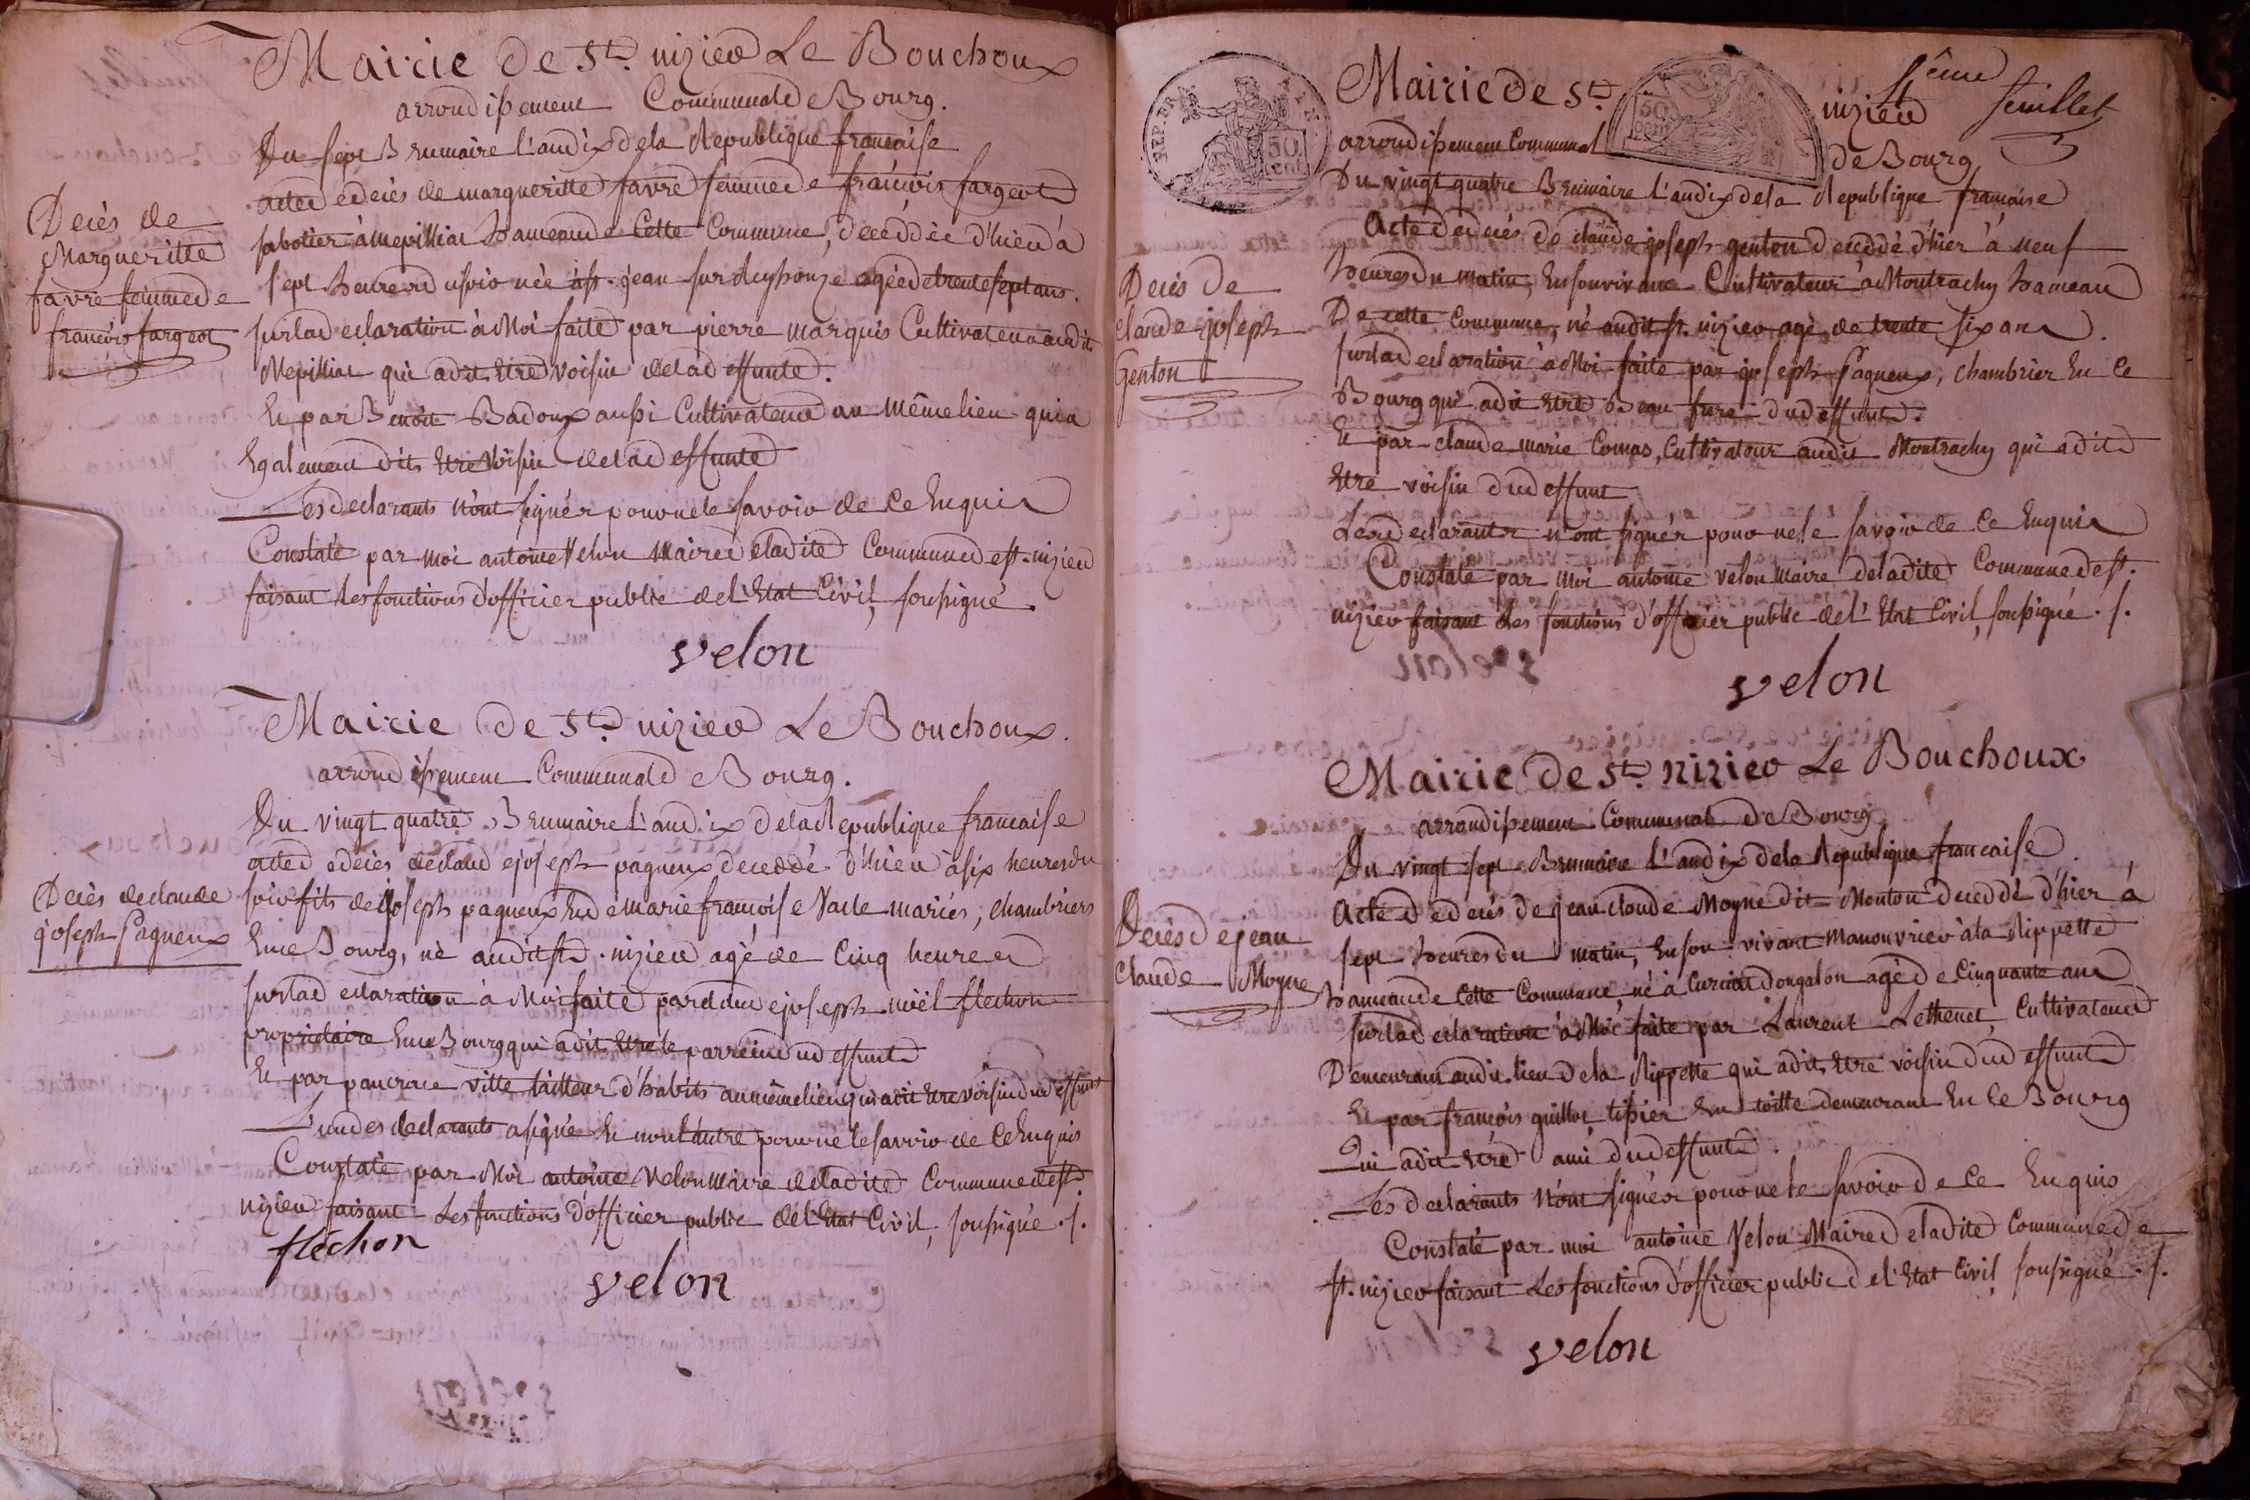 Mairie de St. nizier Le Bouchoux
arrondissement Communal de Bourg.
Du sept Brumaire l'an dix de la Republique francaise
acte de decès de margueritte favre femme de francois fargeot
sabotier à Mepilliat hameau de Cette Commune, decéddèe d'hier à
sept heures du soir née à st. jean sur Reyssouze agée de trente sept ans.
sur la declaration à Moi faite par pierre marquis Cultivateur audit
Mepilliat qui a dit etre voisin de la deffunte.
Et par Benoit Badoux aussi Cultivateur au même lieu qui a
Egalement dit Etre Voisin de la deffunte
Les declarants n'ont signés pour ne le savoir de ce Enquis
Constaté par moi antoine Velon Maire de ladite Commune de st. nizier
faisant les fonctions d'officier public de l'Etat Civil, soussigné.
velon
Decès de
Margueritte
favre femme de
francois fargeot
Mairie de St. nizier Le Bouchoux.
arrondissement Communal de Bourg.
Du vingt quatre Brumaire l'an dix de la Republique francaise
acte de decès de claude joseph pagneux deceddé d'hier à six heures du
soir fils de Joseph pagneux Et de marie francoise Vacle mariés, chambriers
En ce Bourg, né audit St. nizier agé de Cinq heures
sur la declaration à Moi faite par claude joseph noël flechon
propriétaire En ce Bourg qui a dit Etre le parrein du deffunt
Et par pancrace ville tailleur d'habits au même lieu qui a dit Etre voisin du deffunt
L'un des declarants a signé Et non l'autre pour ne le savoir de ce Enquis
Constaté par Moi antoine Velon Maire de ladite Commune de st.
nizier faisant Les fonctions d'officier public de l'Etat Civil, soussigné. /.
flechon
velon
Decès de claude
joseph Pagneux
Mairie de St. nizier
ême feuillet
50 cen
arrondissement Communal de Bourg
Du vingt quatre Brumaire l'an dix de la Republique francaise
Acte de decès de claude joseph genton deceddé d'hier à neuf
heures du matin, En son vivant Cultivateur à Montrachy hameau
De cette Commune, né audit st. nizier agé de trente six ans.
sur la declaration à Moi faite par joseph Pagneux, chambrier En Ce
Bourg qui a dit Etre Beau frere du deffunt.
Et par claude marie Comas, Cultivateur audit Montrachy qui a dit
Etre voisin du deffunt
Les declarants n'ont signés pour ne le savoir de Ce Enquis
Constaté par Moi antoine velon Maire de ladite Commune de st.
nizier faisant Les fonctions d'officier public de l'Etat Civil, soussigné. /.
velon
Decès de
claude joseph
Genton
Mairie de St. nizier Le Bouchoux
arrondissement Communal de Bourg
Du vingt sept Brumaire l'an dix de la Republique francaise
Acte de decès de jean claude Moyne dit Monton deceddé d'hier à
sept heures du matin, En son vivant Manouvrier à la Rippette
hameau de Cette Commune, né à Curciat Dongalon agé de Cinquante ans
sur la declaration à Moi faite par Laurent Lethenet, Cultivateur
Demeurant audit lieu de la Rippette qui a dit Etre voisin du deffunt
Et par francois guillot, tissier En toille demeurant En ce Bourg
Qui a dit Etre ami du deffunt.
Les declarants n'ont signés pour ne le savoir de Ce Enquis
Constaté par moi antoine Velon Maire de ladite Commune de
st. nizier faisant Les fonctions d'officier public de l'Etat Civil, soussigné. /.
velon
Decès de jean
Claude Moyne